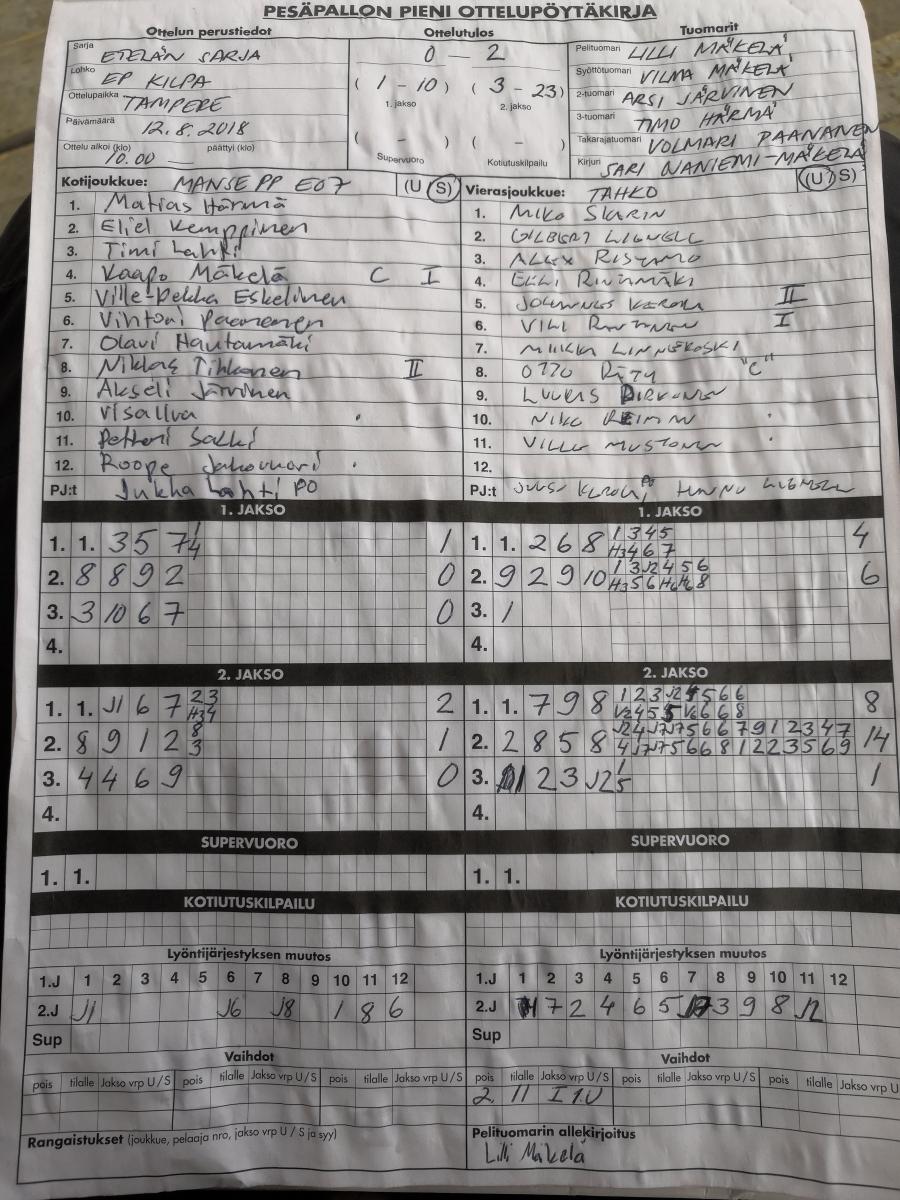 PESÄPALLON PIENI OTTELUPÖYTÄKIRJA
Ottelun perustiedot
Sarja ETELÄN SARJA
Lohko EP KILPA
Ottelupaikka TAMPERE
Päivämäärä 12.8.2018
Ottelu alkoi (klo) 10.00 päättyi (klo)
Ottelutulos
0 - 2
(1 - 10) (3 - 23)
1. jakso 2. jakso
( - ) ( - )
Supervuoro Kotiutuskilpailu
Tuomarit
Pelituomari LILLI MÄKELÄ
Syöttötuomari VILMA MÄKELÄ
2-tuomari ARSI JÄRVINEN
3-tuomari TIMO HÄRMÄ
Takarajatuomari VOLMARI PAANANEN
Kirjuri SARI WANIEMI-MÄKELÄ
Kotijoukkue: MANSE PP E07 (U S)
1. Matias Härmä
2. Eliel Kemppinen
3. Timi Lahti
4. Kaapo Mäkelä C I
5. Ville-Pekka Eskelinen
6. Vihtori Paananen
7. Olavi Hautamäki
8. Niklas Tihkanen II
9. Akseli Järvinen
10.
11. Petteri Salli
12. Roope
PJ:t Jukka Lahti PO
Vierasjoukkue: TAHKO (U S)
1. MIKO SKARIN
2. GILBERT
3. ALEX
4. ELLI
5. JOHANNES II
6. VILI I
7. MIIKKA LINNAKOSKI
8. OTTO RÄTY "C"
9. LUUKAS
10. NIKO REIMAN
11. VILLE MUSTONEN
12.
PJ:t JUSSI
1. JAKSO
1. 1. 3 5 7 1 4 1
2. 8 8 9 2 0
3. 3 10 6 7 0
4.
1. JAKSO
1. 1. 2 6 8 1 3 4 5 4
H3 4 6 7
2. 9 2 9 10 1 3 J2 4 5 6 6
H3 5 6 H6 H6 8
3. 1
4.
2. JAKSO
1. 1. J1 6 7 2 3 2
H3 4
2. 8 9 1 2 8 1
3
3. 4 4 6 9 0
4.
2. JAKSO
1. 1. 7 9 8 1 2 3 J2 4 5 6 6 8
V2 4 5 5 V6 6 6 8
2. 2 8 5 8 J2 4 J7 J7 5 6 6 7 9 1 2 3 4 7 14
4 J7 J7 5 6 6 8 1 2 2 3 5 6 9
3. 1 2 3 J2 1 1
5
4.
SUPERVUORO
1. 1.
SUPERVUORO
1. 1.
KOTIUTUSKILPAILU
KOTIUTUSKILPAILU
Lyöntijärjestyksen muutos
1.J 1 2 3 4 5 6 7 8 9 10 11 12
2.J J1 J6 J8 1 8 6
Sup
Lyöntijärjestyksen muutos
1.J 1 2 3 4 5 6 7 8 9 10 11 12
2.J 7 2 4 6 5 3 9 8 J2
Sup
Vaihdot
pois tilalle Jakso vrp U/S pois tilalle Jakso vrp U/S pois tilalle Jakso vrp U/S
Vaihdot
pois tilalle Jakso vrp U/S pois tilalle Jakso vrp U/S pois tilalle Jakso vrp U
2. 11 I 1.U
Rangaistukset (joukkue, pelaaja nro, jakso vrp U / S ja syy)
Pelituomarin allekirjoitus
Lilli Mäkelä